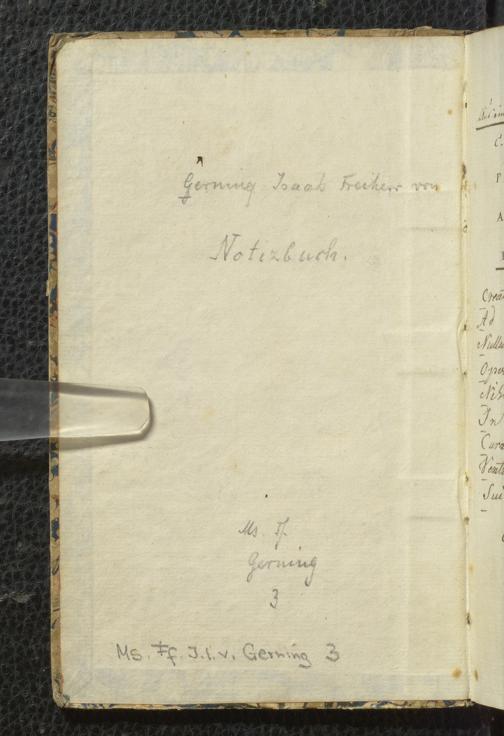 Gerning Isaak Freiherr von
Notizbuch.
Ms. Ff.
Gerning
3
Ms. Ff. J. I. v. Gerning 3
C.
P
A
Crea
Ad
Nullu
Oper
Nih
In
Cura
Vent
Sui